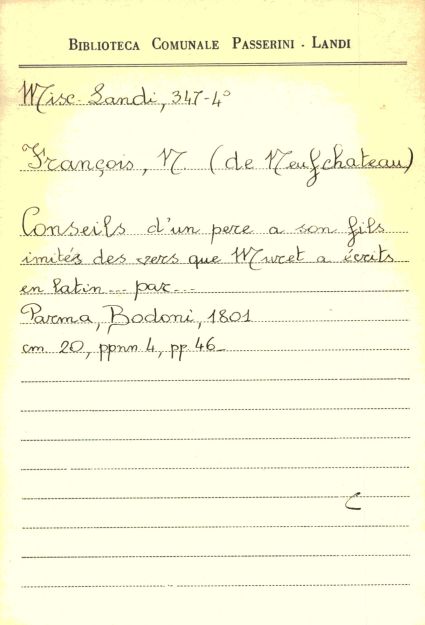 BIBLIOTECA COMUNALE PASSERINI - LANDI
Misc. Landi, 347-4°
François, N. (de Neufchateau)
Conseils d'un pere a son fils
imités des vers que Muret a écrits
en latin... par...
Parma, Bodoni, 1801
cm. 20, ppnn 4, pp. 46_
C